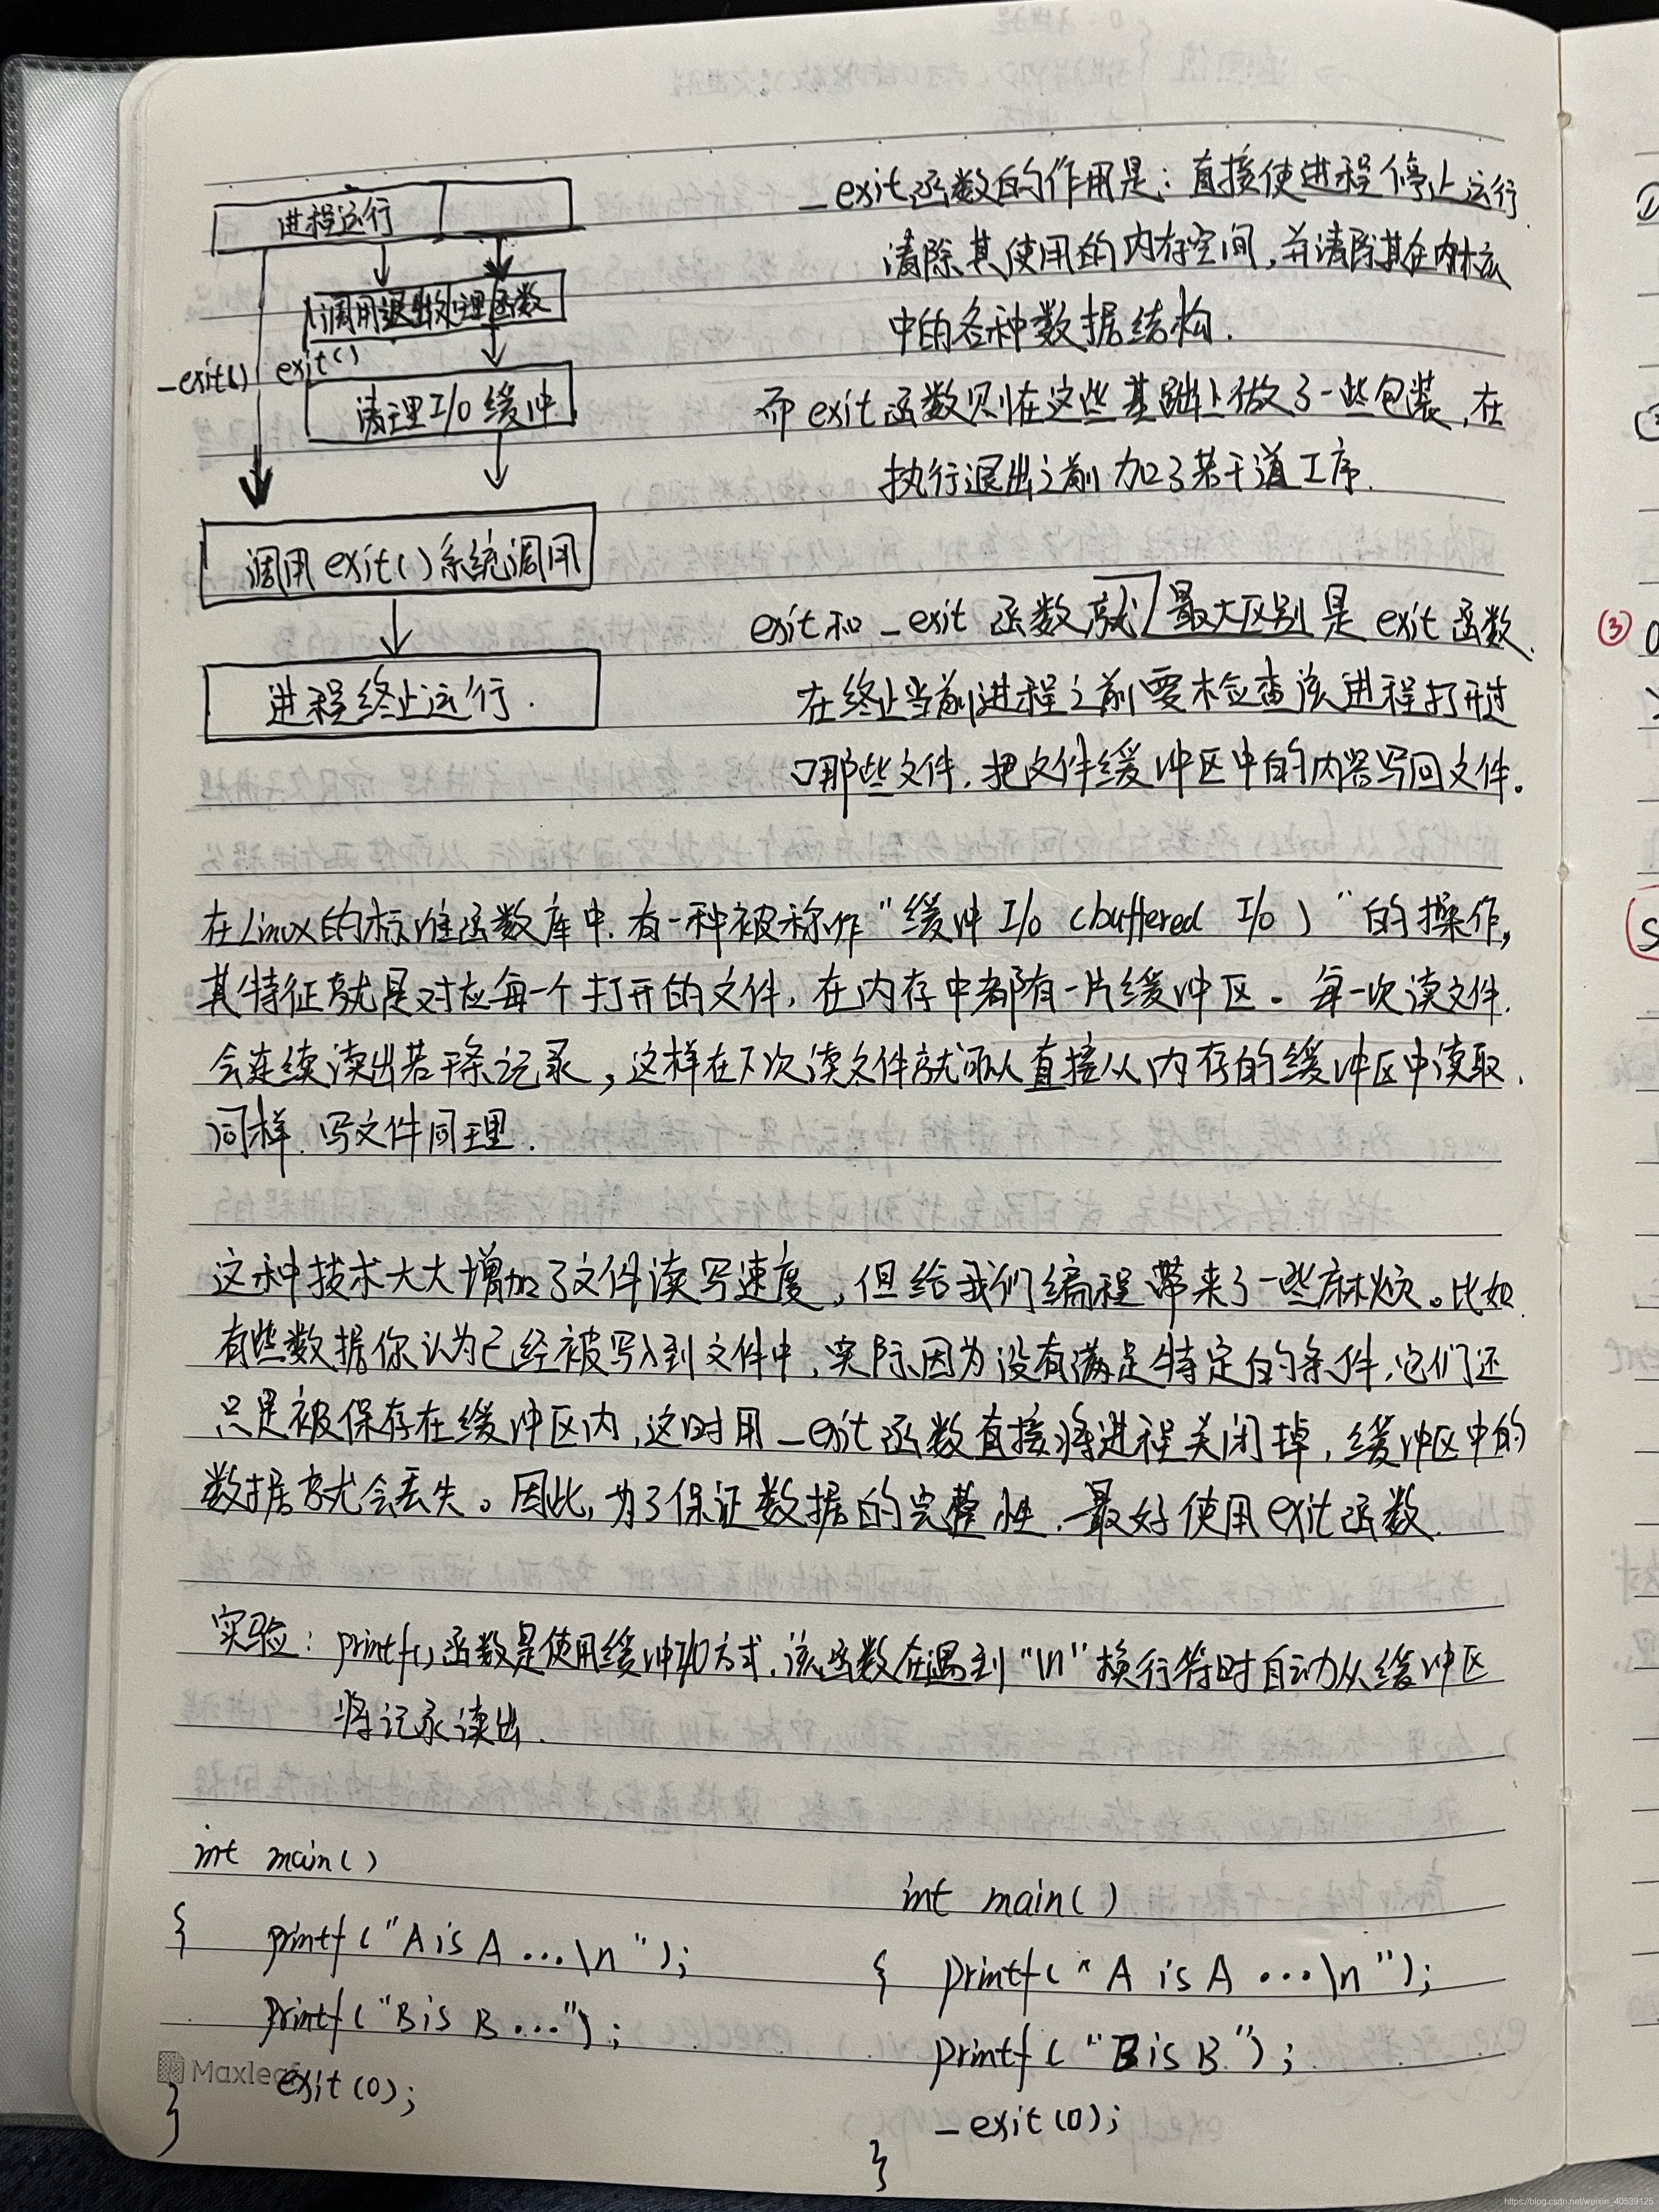 进程运行
调用退出处理函数
_exit() exit()
清理I/O缓冲
调用exit()系统调用
进程终止运行.
_exit函数的作用是：直接使进程停止运行
清除其使用的内存空间,并清除其在内核
中的各种数据结构.
而exit函数则在这些基础上做了一些包装,在
执行退出之前加了若干道工序.
exit和_exit函数就最大区别是exit函数
在终止当前进程之前要检查该进程打开过
哪些文件.把文件缓冲区中的内容写回文件。
在Linux的标准函数库中.有一种被称作“缓冲I/O (buffered I/O)”的操作,
其特征就是对应每一个打开的文件,在内存中都有一片缓冲区。每一次读文件.
会连续读出若干条记录,这样在下次读文件就可以直接从内存的缓冲区中读取.
同样.写文件同理.
这种技术大大增加了文件读写速度,但给我们编程带来了一些麻烦。比如
有些数据你认为已经被写入到文件中,实际因为没有满足特定的条件,它们还
只是被保存在缓冲区内,这时用_exit函数直接将进程关闭掉,缓冲区中的
数据就会丢失。因此,为了保证数据的完整性.最好使用exit函数.
实验：printf()函数是使用缓冲I/O方式.该函数在遇到“\n”换行符时自动从缓冲区
将记录读出.
int main()
{ printf("A is A ...\n");
printf("B is B ...");
exit(0);
}
Maxleaf
int main()
{ printf("A is A ...\n");
printf("B is B");
_exit(0);
}
③
https://blog.csdn.net/weixin_40539125